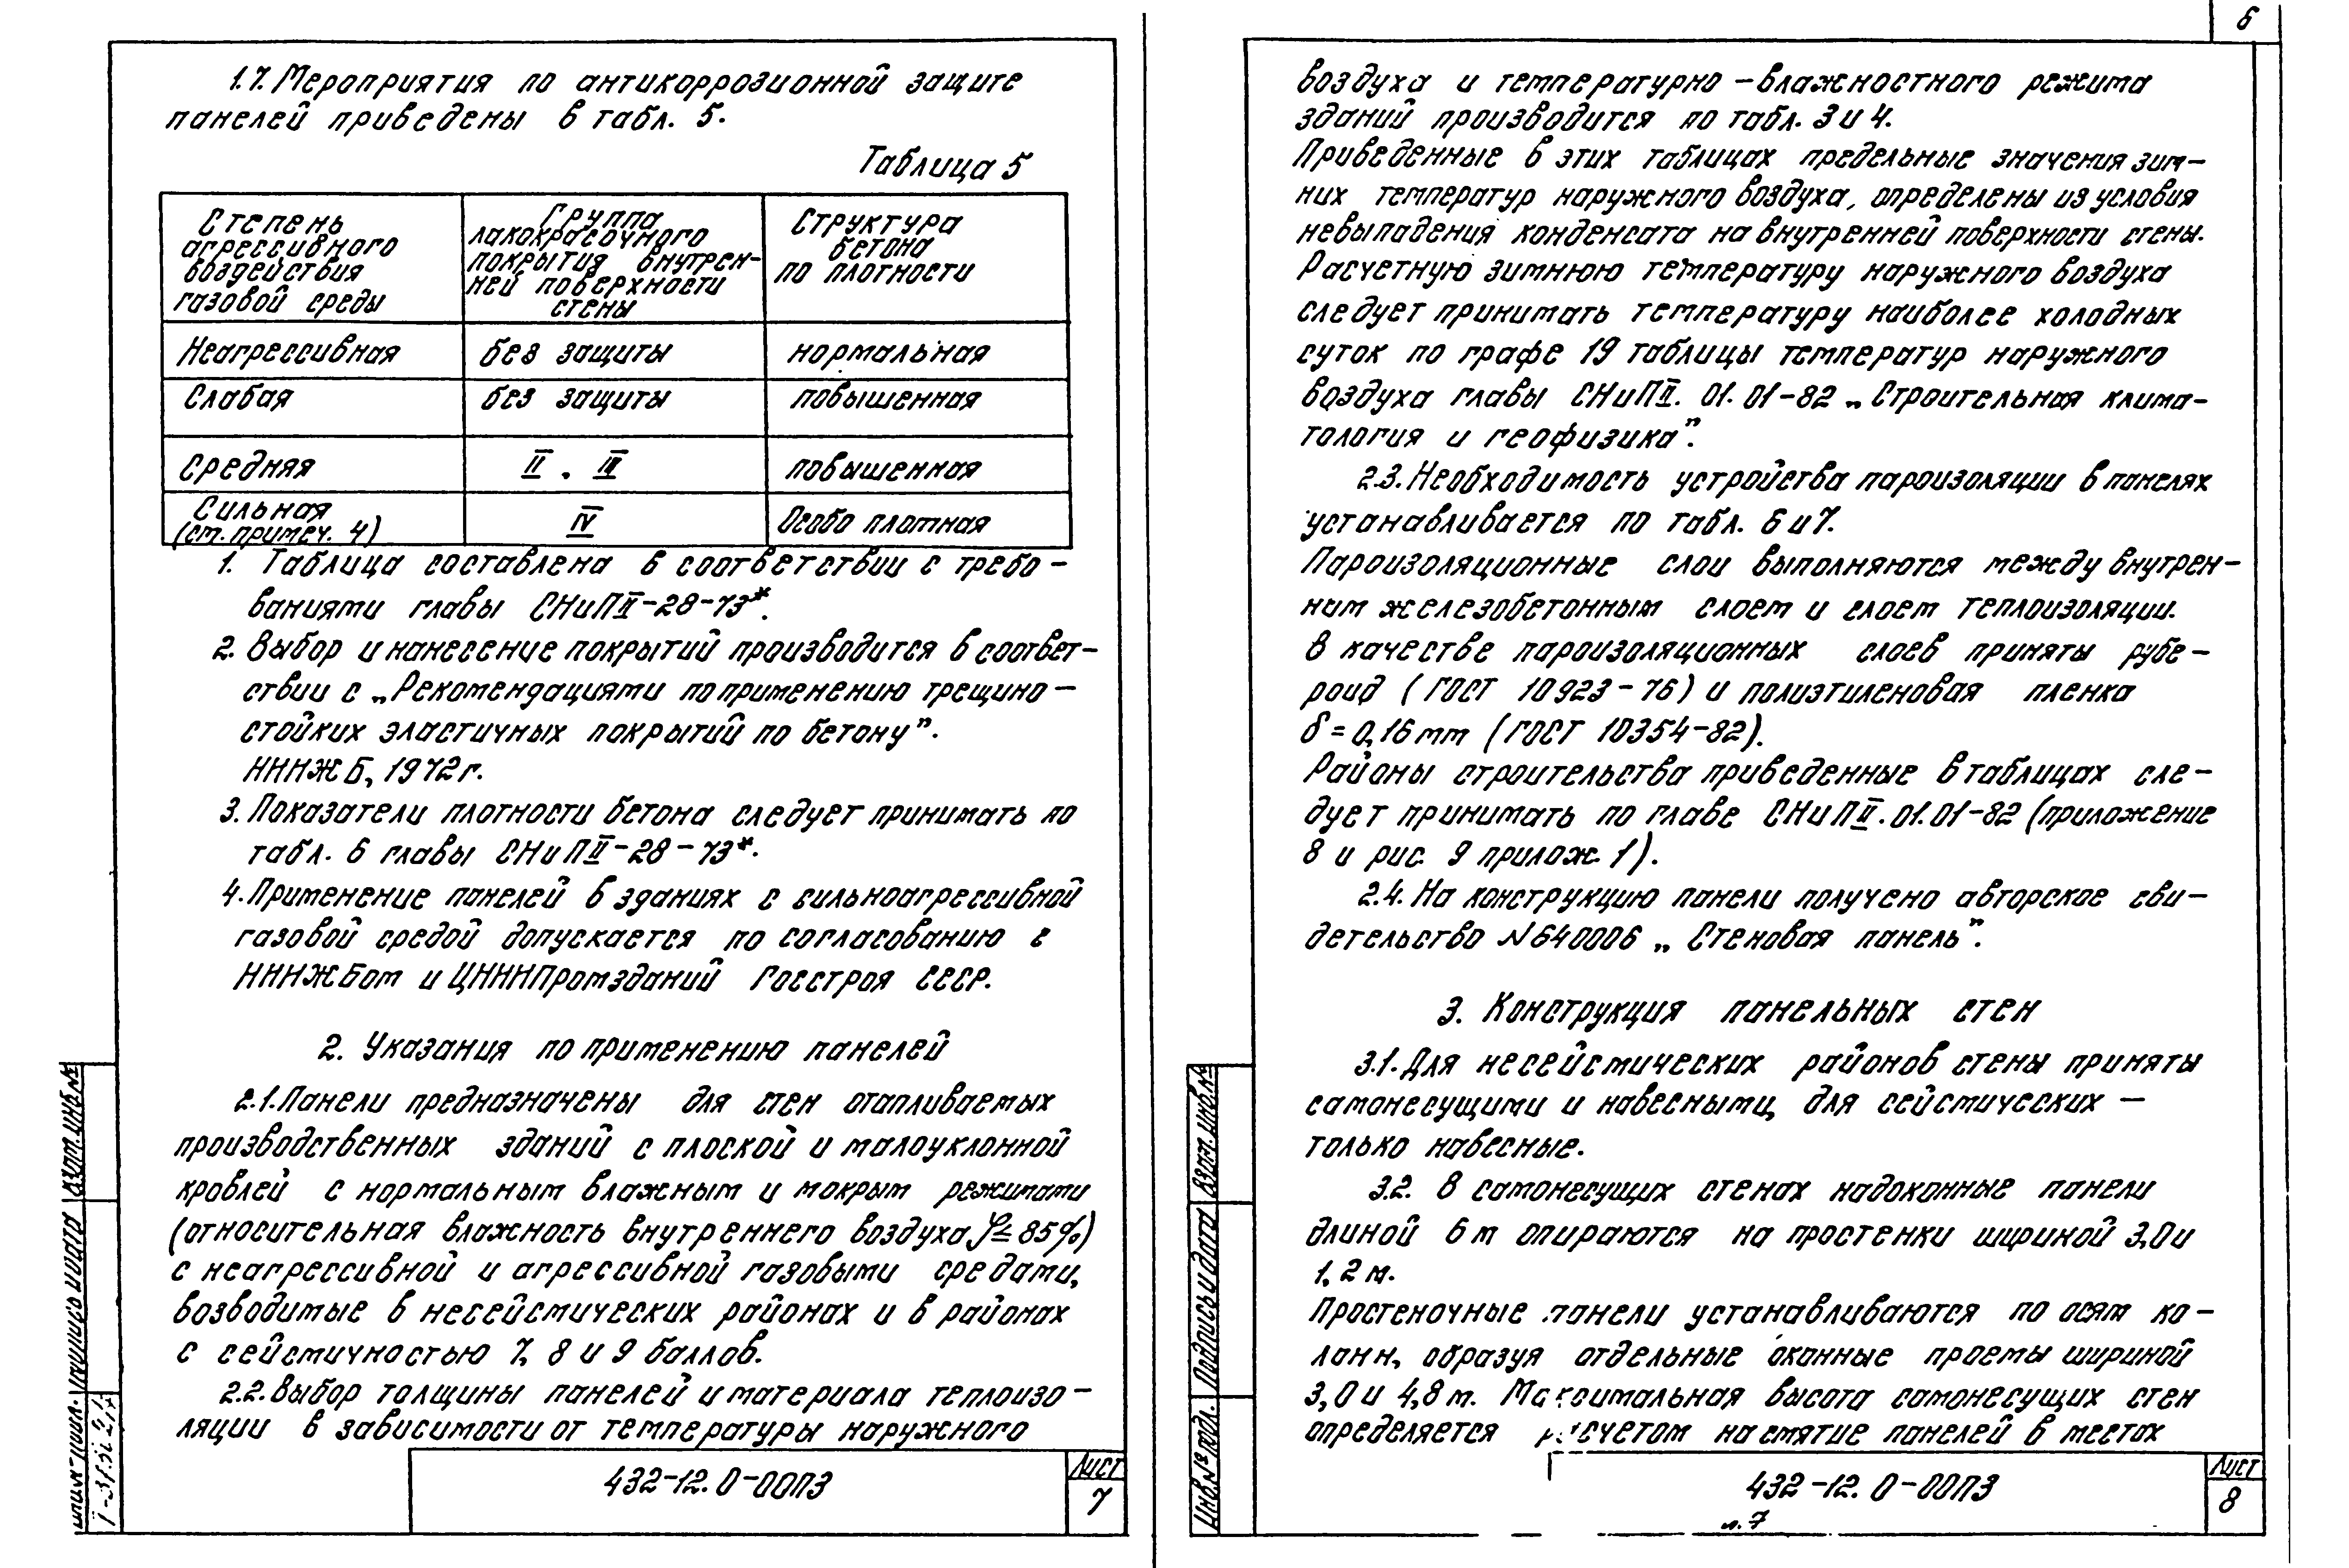 1.7. Мероприятия по антикоррозионной защите
панелей приведены в табл. 5.
Таблица 5
Степень агрессивного воздействия газовой среды | Группа лакокрасочного покрытия внутренней поверхности стены | Структура бетона по плотности
Неагрессивная | без защиты | нормальная
Слабая | без защиты | повышенная
Средняя | II, III | повышенная
Сильная (см. примеч. 4) | IV | Особо плотная
1. Таблица составлена в соответствии с требо-
ваниями главы СНиП II-28-73*.
2. Выбор и нанесение покрытий производится в соответ-
ствии с „Рекомендациями по применению трещино-
стойких эластичных покрытий по бетону".
НИИЖБ, 1972 г.
3. Показатели плотности бетона следует принимать по
табл. 6 главы СНиП II-28-73*.
4. Применение панелей в зданиях с сильноагрессивной
газовой средой допускается по согласованию с
НИИЖБом и ЦНИИПромзданий Госстроя СССР.
2. Указания по применению панелей
2.1. Панели предназначены для стен отапливаемых
производственных зданий с плоской и малоуклонной
кровлей с нормальным влажным и мокрым режимами
(относительная влажность внутреннего воздуха φ≤85%)
с неагрессивной и агрессивной газовыми средами,
возводимые в несейсмических районах и в районах
с сейсмичностью 7, 8 и 9 баллов.
2.2. Выбор толщины панелей и материала теплоизо-
ляции в зависимости от температуры наружного
432-12.0-00ПЗ
Лист
7
Взам. инв. №
6
воздуха и температурно-влажностного режима
зданий производится по табл. 3 и 4.
Приведенные в этих таблицах предельные значения зим-
них температур наружного воздуха, определены из условия
невыпадения конденсата на внутренней поверхности стены.
Расчетную зимнюю температуру наружного воздуха
следует принимать температуру наиболее холодных
суток по графе 19 таблицы температур наружного
воздуха главы СНиП II. 01.01-82 „Строительная клима-
тология и геофизика".
2.3. Необходимость устройства пароизоляции в панелях
устанавливается по табл. 6 и 7.
Пароизоляционные слои выполняются между внутрен-
ним железобетонным слоем и слоем теплоизоляции.
В качестве пароизоляционных слоев приняты рубе-
роид (ГОСТ 10923-76) и полиэтиленовая пленка
δ=0,16 мм (ГОСТ 10354-82).
Районы строительства приведенные в таблицах сле-
дует принимать по главе СНиП II.01.01-82 (приложение
8 и рис. 9 прилож. 1).
2.4. На конструкцию панели получено авторское сви-
детельство №640006 „Стеновая панель".
3. Конструкция панельных стен
3.1. Для несейсмических районов стены приняты
самонесущими и навесными, для сейсмических —
только навесные.
3.2. В самонесущих стенах надоконные панели
длиной 6 м опираются на простенки шириной 3,0 и
1,2 м.
Простеночные панели устанавливаются по осям ко-
лонн, образуя отдельные оконные проемы шириной
3,0 и 4,8 м. Максимальная высота самонесущих стен
определяется расчетом на смятие панелей в местах
432-12.0-00ПЗ
л. 7
Лист
8
Инв. № подл.
Подпись и дата
Взам. инв. №